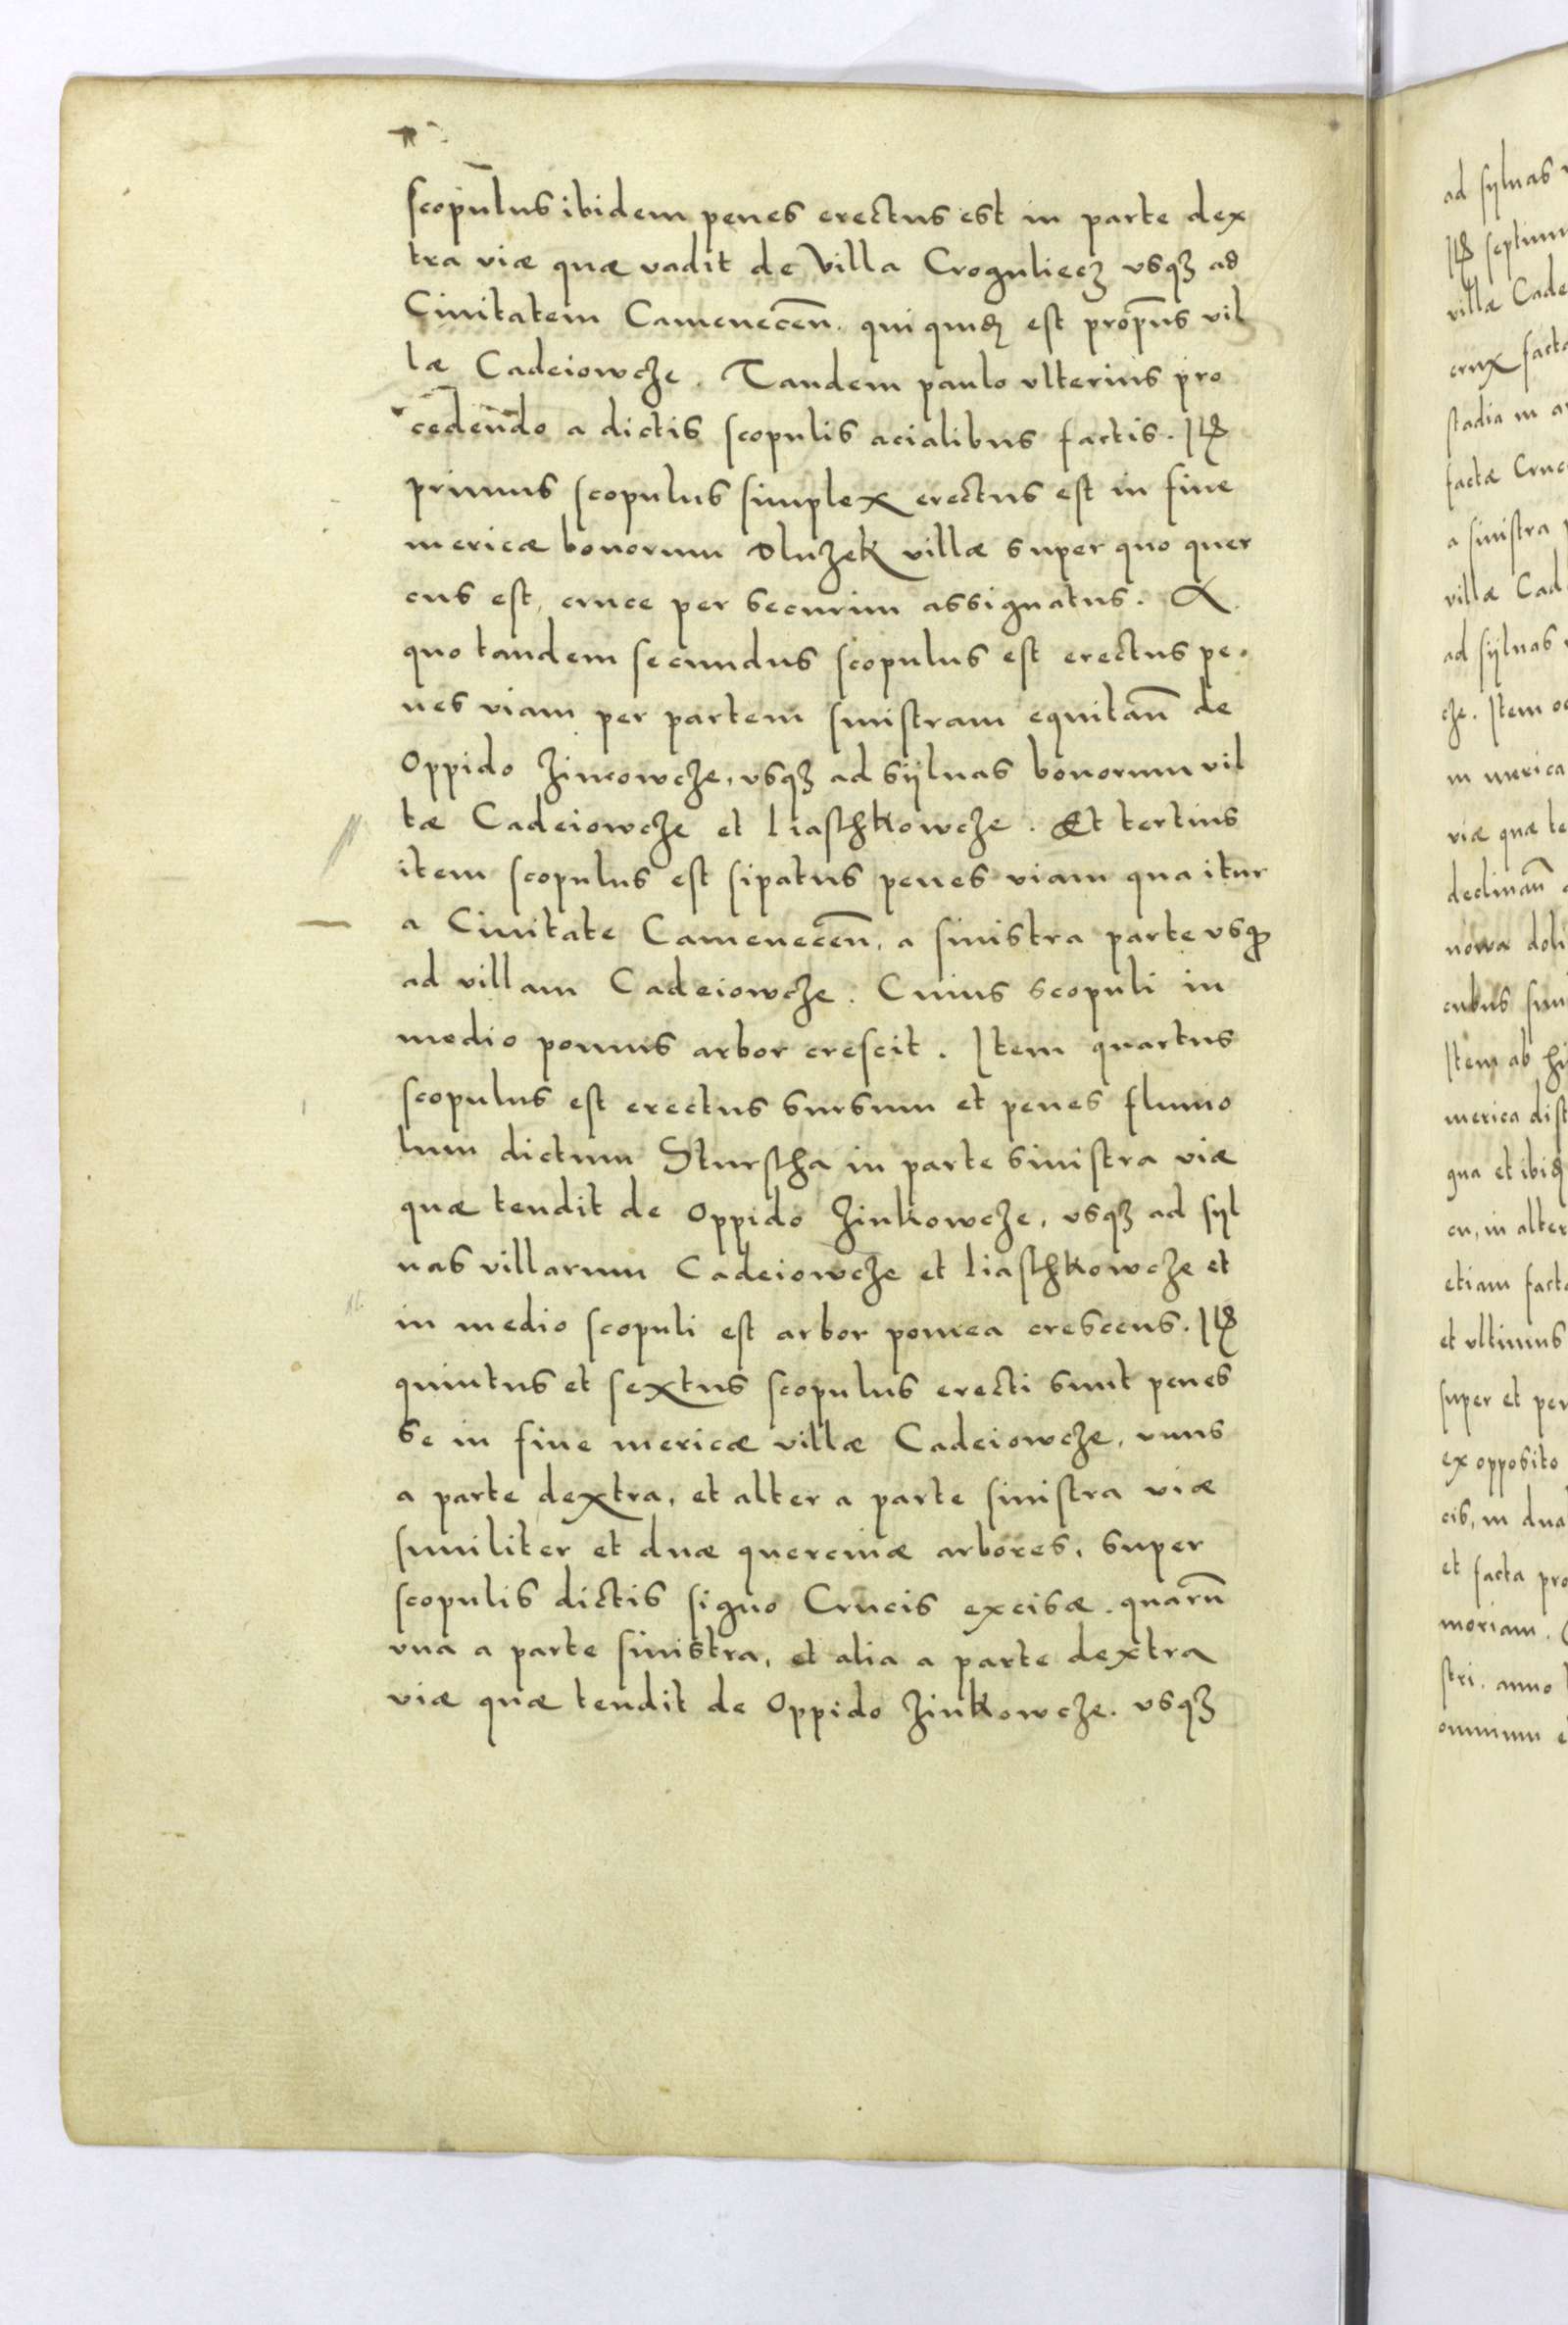 scopulus ibidem penes erectus est in parte dex
tra viæ quæ vadit de Villa Croguliecz vsqꝫ ad
Ciuitatem Camenecen̄. qui quidꝫ est proprius vil
læ Cadeiowcze. Tandem paulo vlterius pro
cedendo a dictis scopulis acialibus factis. Itꝫ
primus scopulus simplex erectus est in fine
mericæ bonorum Dluzek villæ super quo quer
cus est, cruce per securim assignatus. A
quo tandem secundus scopulus est erectus pe.
nes viam per partem sinistram equitan̄ de
Oppido Zincowcze, vsqꝫ ad siluas bonorum vil
læ Cadeiowcze et liaschkowcze. Et tertius
item scopulus est sipatus penes viam qua itur
a Ciuitate Camenecen̄, a sinistra parte vsqꝫ
ad villam Cadeiowcze. Cuius scopuli in
medio pomus arbor crescit. Item quartus
scopulus est erectus sursum et penes fluuio
lum dictum Sturscha in parte sinistra viæ
quæ tendit de Oppido Zinkowcze, vsqꝫ ad syl
uas villarum Cadeiowcze et liaschkowcze et
in medio scopuli est arbor pomea crescens. Itꝫ
quintus et sextus scopulus erecti sunt penes
se in fine mericæ villæ Cadeiowcze, vnus
a parte dextra, et alter a parte sinistra viæ
similiter et duæ quercinæ arbores, super
scopulis dictis signo Crucis excisæ. quarū
vna a parte sinistra, et alia a parte dextra
viæ quæ tendit de Oppido Zinkowcze. vsqꝫ
ad syluas
septim
villæ Cade
crux facta
stadia in
factæ Cruc
a sinistra
villæ Cad
ad syluas
cze. Item
in merica
viæ quæ te
declinan̄
nowa
Item ab
merica dist
qua et ibidꝫ
in alter
etiam facta
et vltimus
super et pen
ex opposito
cis, in dua
et facta pro
moriam.
stri. anno
omnium